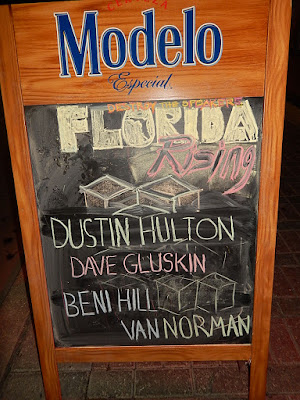 Modelo
Especial
FLORIDA
Rising
DUSTIN HULTON
DAVE GLUSKIN
BENI HILL
VAN NORMAN